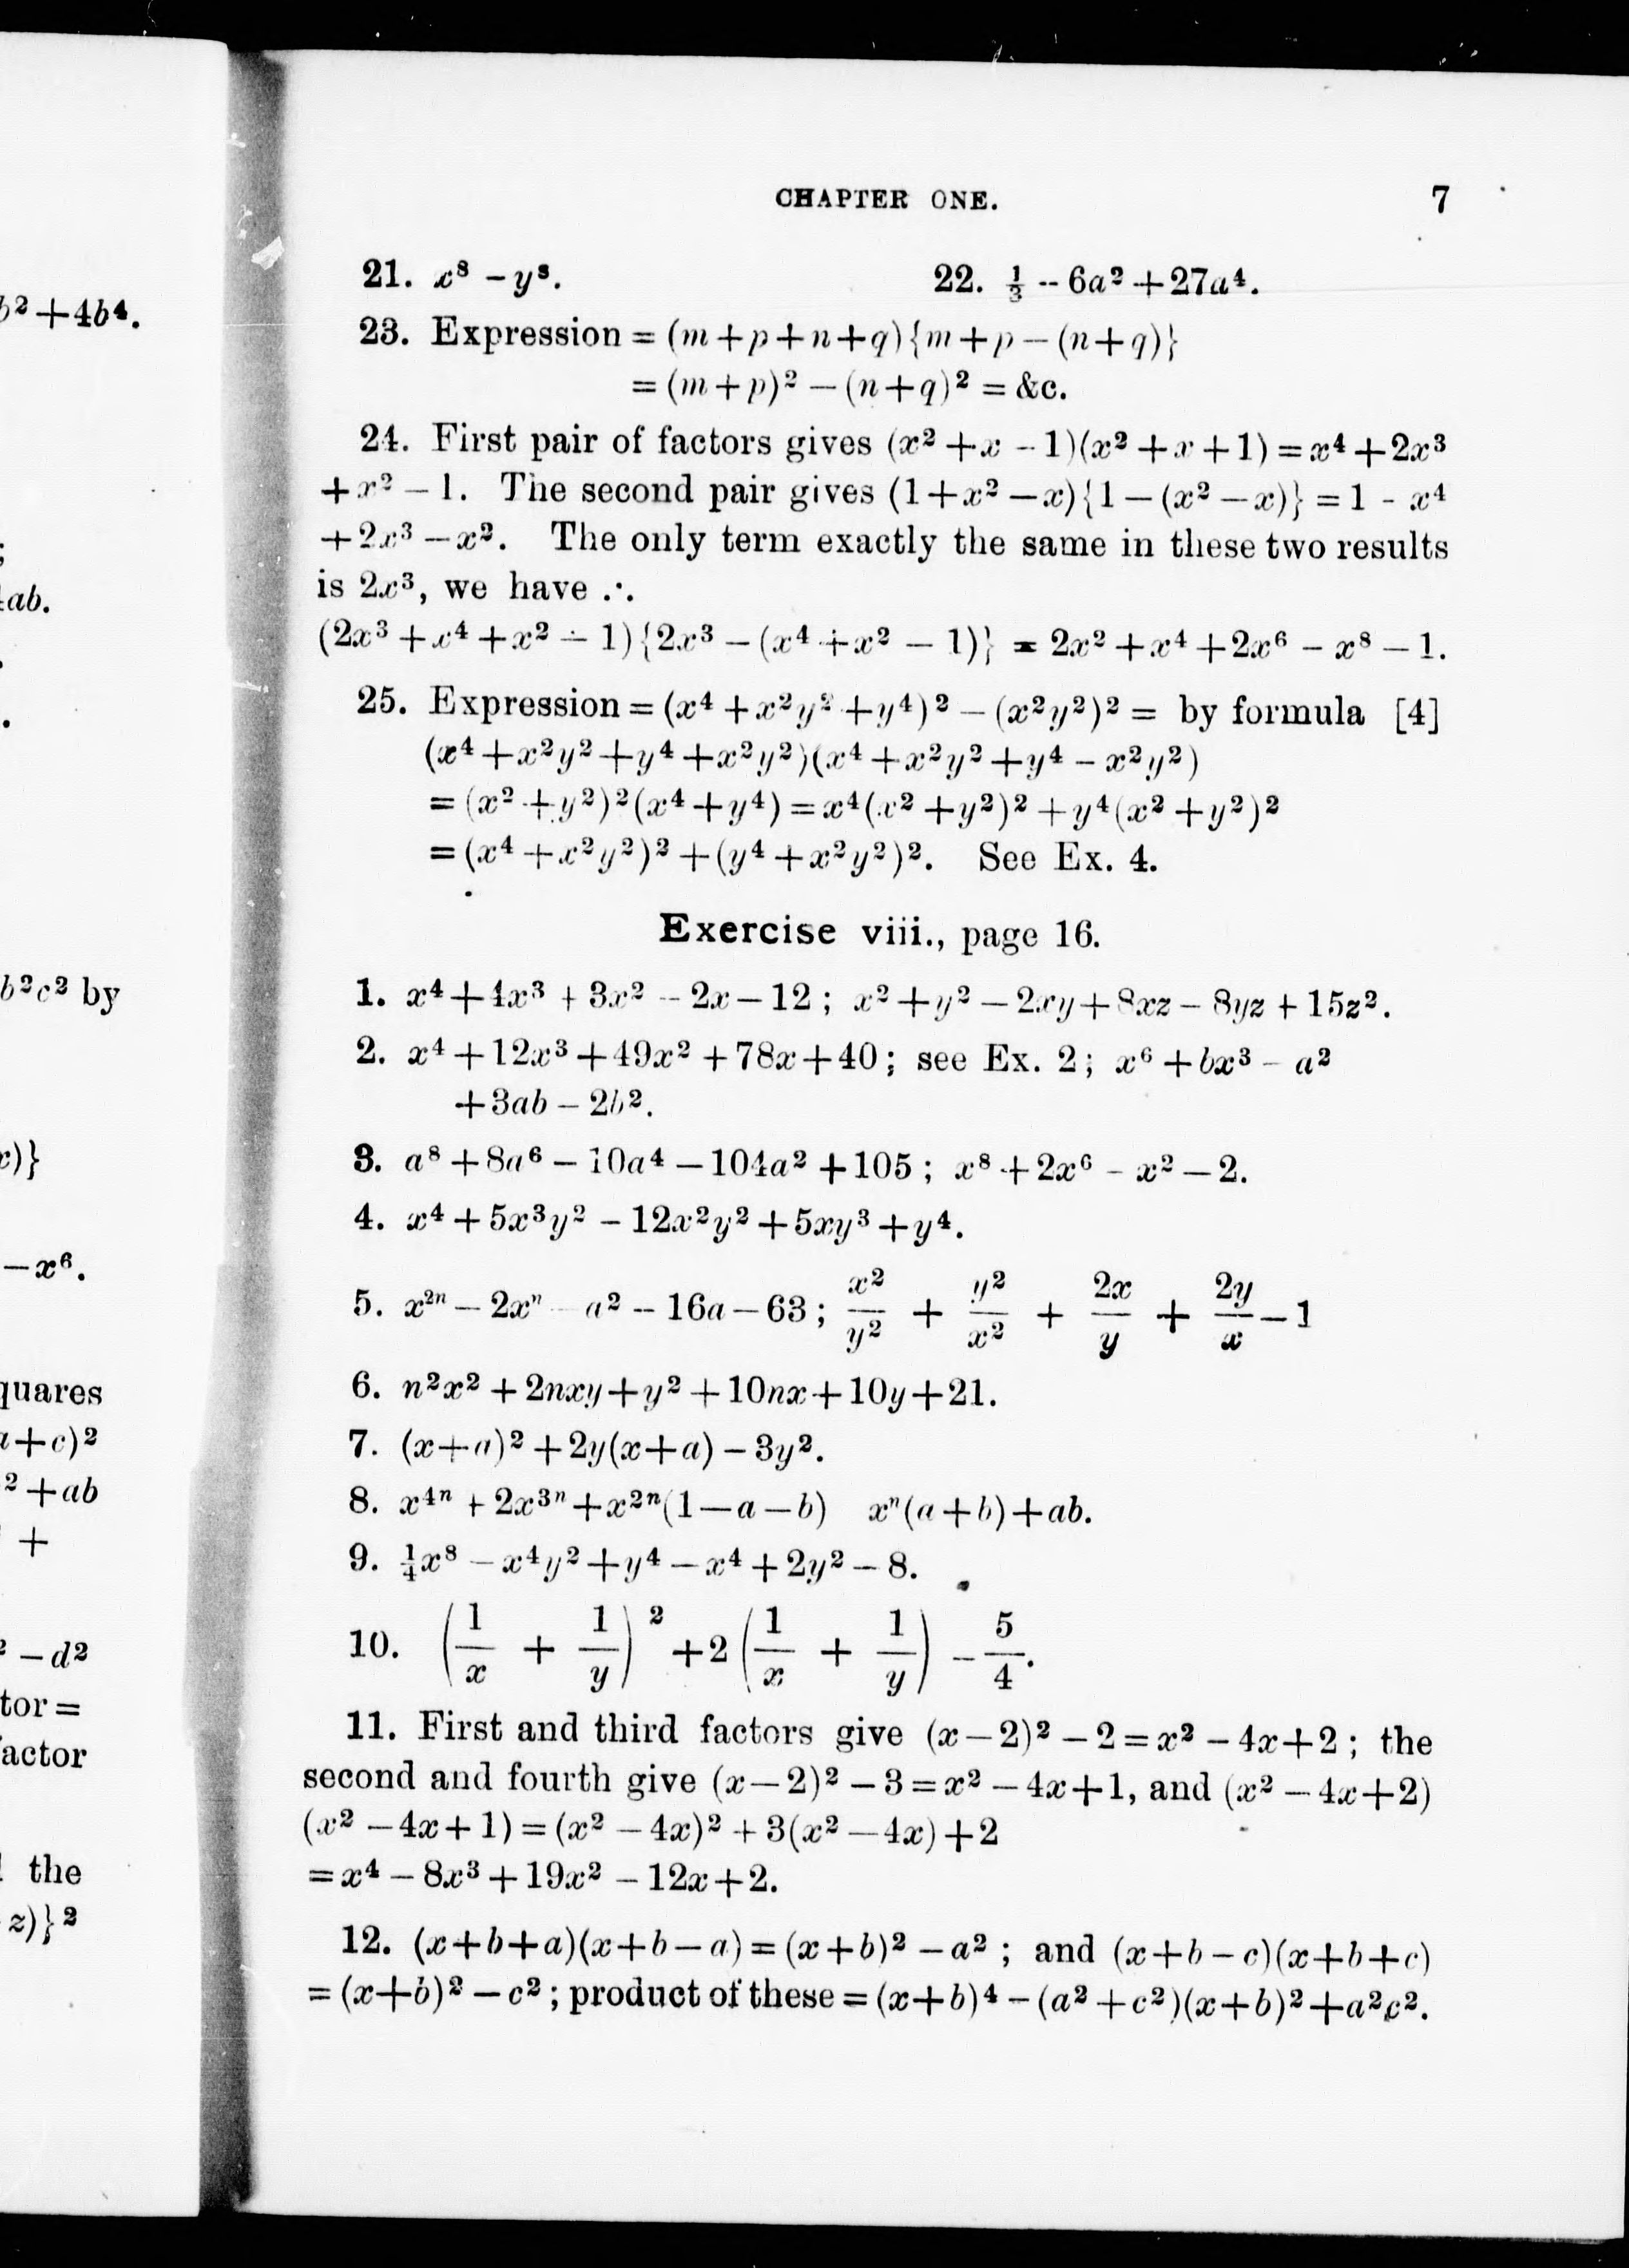 b² + 4b⁴.
ab.
b²c² by
c)}
— x⁶.
quares
a + c)²
² + ab
+
² — d²
tor =
actor
the
z)}²
CHAPTER ONE. 7
21. x⁸ – y⁸. 22. ⅓ – 6a² + 27a⁴.
23. Expression = (m + p + n + q){m + p — (n + q)}
= (m + p)² — (n + q)² = &c.
24. First pair of factors gives (x² + x – 1)(x² + x + 1) = x⁴ + 2x³
+ x² — 1. The second pair gives (1 + x² — x){1 — (x² — x)} = 1 - x⁴
+ 2x³ — x². The only term exactly the same in these two results
is 2x³, we have ∴
(2x³ + x⁴ + x² – 1){2x³ — (x⁴ + x² — 1)} = 2x² + x⁴ + 2x⁶ – x⁸ — 1.
25. Expression = (x⁴ + x²y² + y⁴)² — (x²y²)² = by formula [4]
(x⁴ + x²y² + y⁴ + x²y²)(x⁴ + x²y² + y⁴ – x²y²)
= (x² + y²)²(x⁴ + y⁴) = x⁴(x² + y²)² + y⁴(x² + y²)²
= (x⁴ + x²y²)² + (y⁴ + x²y²)². See Ex. 4.
Exercise viii., page 16.
1. x⁴ + 4x³ + 3x² – 2x — 12 ; x² + y² — 2xy + 8xz – 8yz + 15z².
2. x⁴ + 12x³ + 49x² + 78x + 40 ; see Ex. 2 ; x⁶ + bx³ – a²
+ 3ab – 2b².
3. a⁸ + 8a⁶ – 10a⁴ — 104a² + 105 ; x⁸ + 2x⁶ – x² — 2.
4. x⁴ + 5x³y² – 12x²y² + 5xy³ + y⁴.
5. x²ⁿ — 2xⁿ – a² – 16a — 63 ; x²/y² + y²/x² + 2x/y + 2y/x — 1
6. n²x² + 2nxy + y² + 10nx + 10y + 21.
7. (x + a)² + 2y(x + a) – 3y².
8. x⁴ⁿ + 2x³ⁿ + x²ⁿ(1 — a — b) xⁿ(a + b) + ab.
9. ¼x⁸ — x⁴y² + y⁴ — x⁴ + 2y² – 8.
10. (1/x + 1/y)² + 2(1/x + 1/y) – 5/4.
11. First and third factors give (x — 2)² – 2 = x² – 4x + 2 ; the
second and fourth give (x — 2)² – 3 = x² — 4x + 1, and (x² — 4x + 2)
(x² — 4x + 1) = (x² – 4x)² + 3(x² — 4x) + 2
= x⁴ – 8x³ + 19x² – 12x + 2.
12. (x + b + a)(x + b — a) = (x + b)² – a² ; and (x + b – c)(x + b + c)
= (x + b)² – c² ; product of these = (x + b)⁴ – (a² + c²)(x + b)² + a²c².